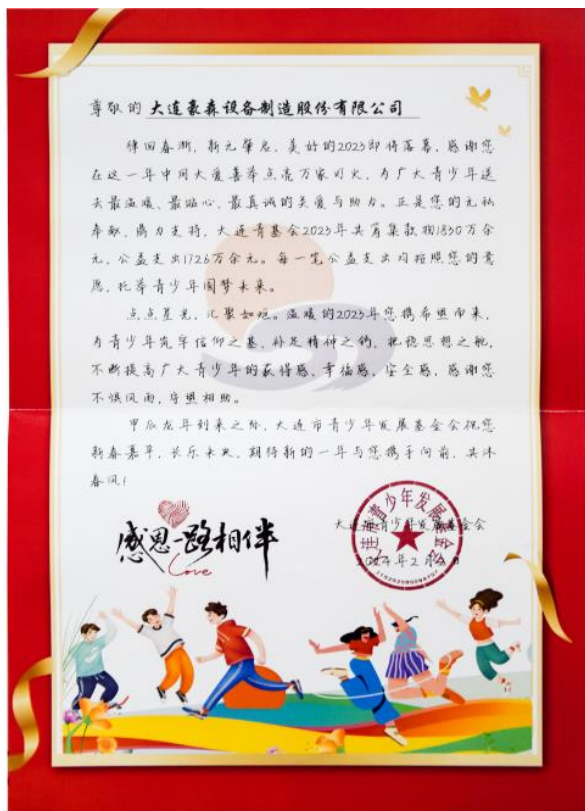 尊敬的 大连豪森设备制造股份有限公司
律回春渐，新元肇启，美好的2023即将落幕，感谢您
在这一年中用大爱善举点亮万家灯火，为广大青少年送
去最温暖、最贴心、最真诚的关爱与助力。正是您的无私
奉献、鼎力支持，大连青基会2023年共筹集款物1830万余
元，公益支出1726万余元。每一笔公益支出均按照您的意
愿，托举青少年圆梦未来。
点点星光，汇聚如炬。温暖的2023年您携希望而来，
为青少年筑牢信仰之基、补足精神之钙、把稳思想之舵，
不断提高广大青少年的获得感、幸福感、安全感，感谢您
不惧风雨，守望相助。
甲辰龙年到来之际，大连市青少年发展基金会祝您
新春嘉平，长乐未央，期待新的一年与您携手向前，共沐
春风！
感恩一路相伴
Love
大连市青少年发展基金会
2024年2月